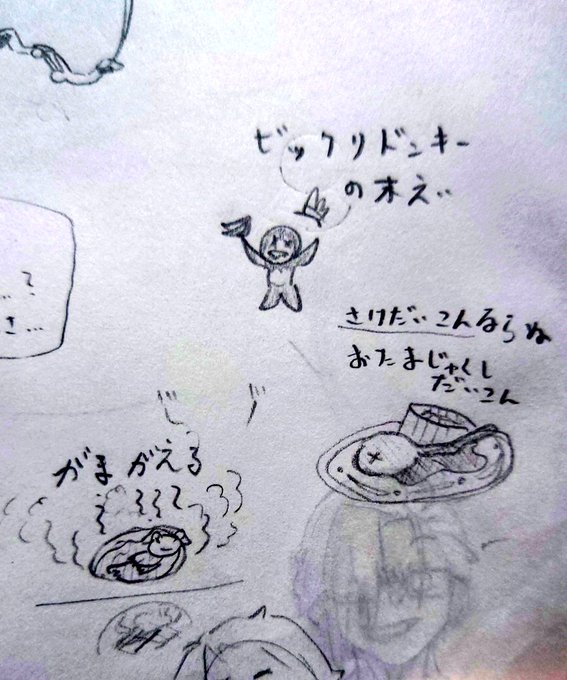 ビックリドンキー
の末えい
…?
き…
さけだいこんならぬ
おたまじゃくし
だいこん
がまがえる